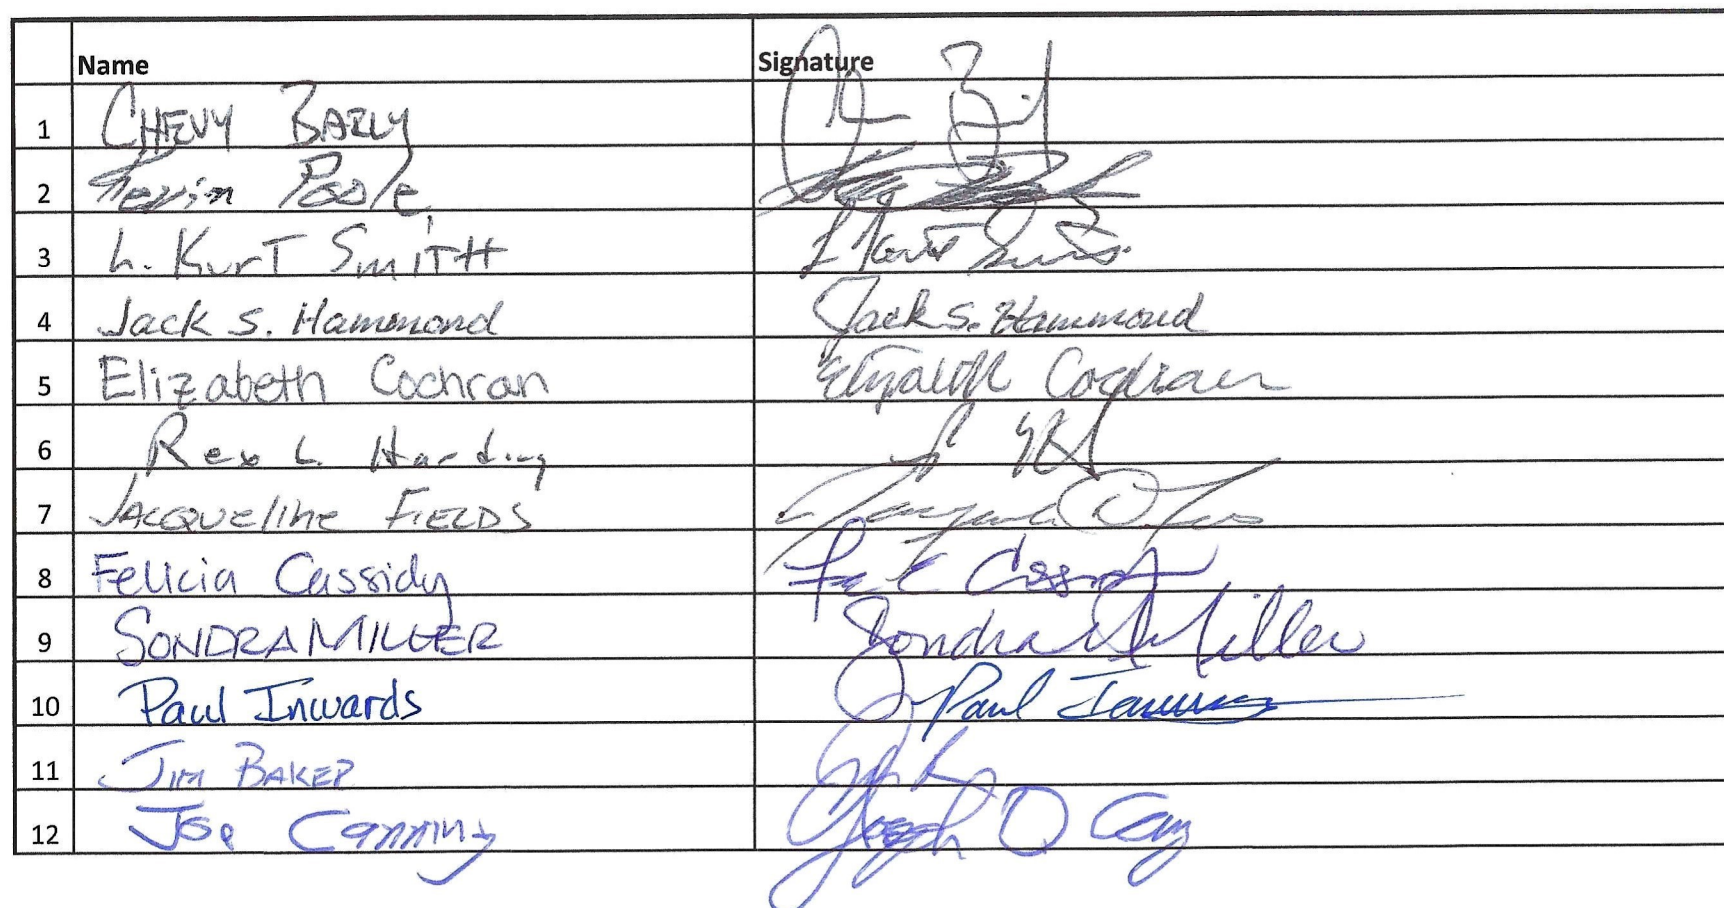 Name Signature
1 CHEVY BAILY
2 Kevin Poole
3 L. KURT SMITH L Kurt Smith
4 Jack S. Hammond Jack S. Hammond
5 Elizabeth Cochran Elizabeth Cochran
6 Rex L. Harding
7 JACQUELINE FIELDS
8 Felicia Cassidy
9 SONDRA MILLER Sondra Miller
10 Paul Inwards Paul
11 JIM BAKER
12 Joe Canning Joseph